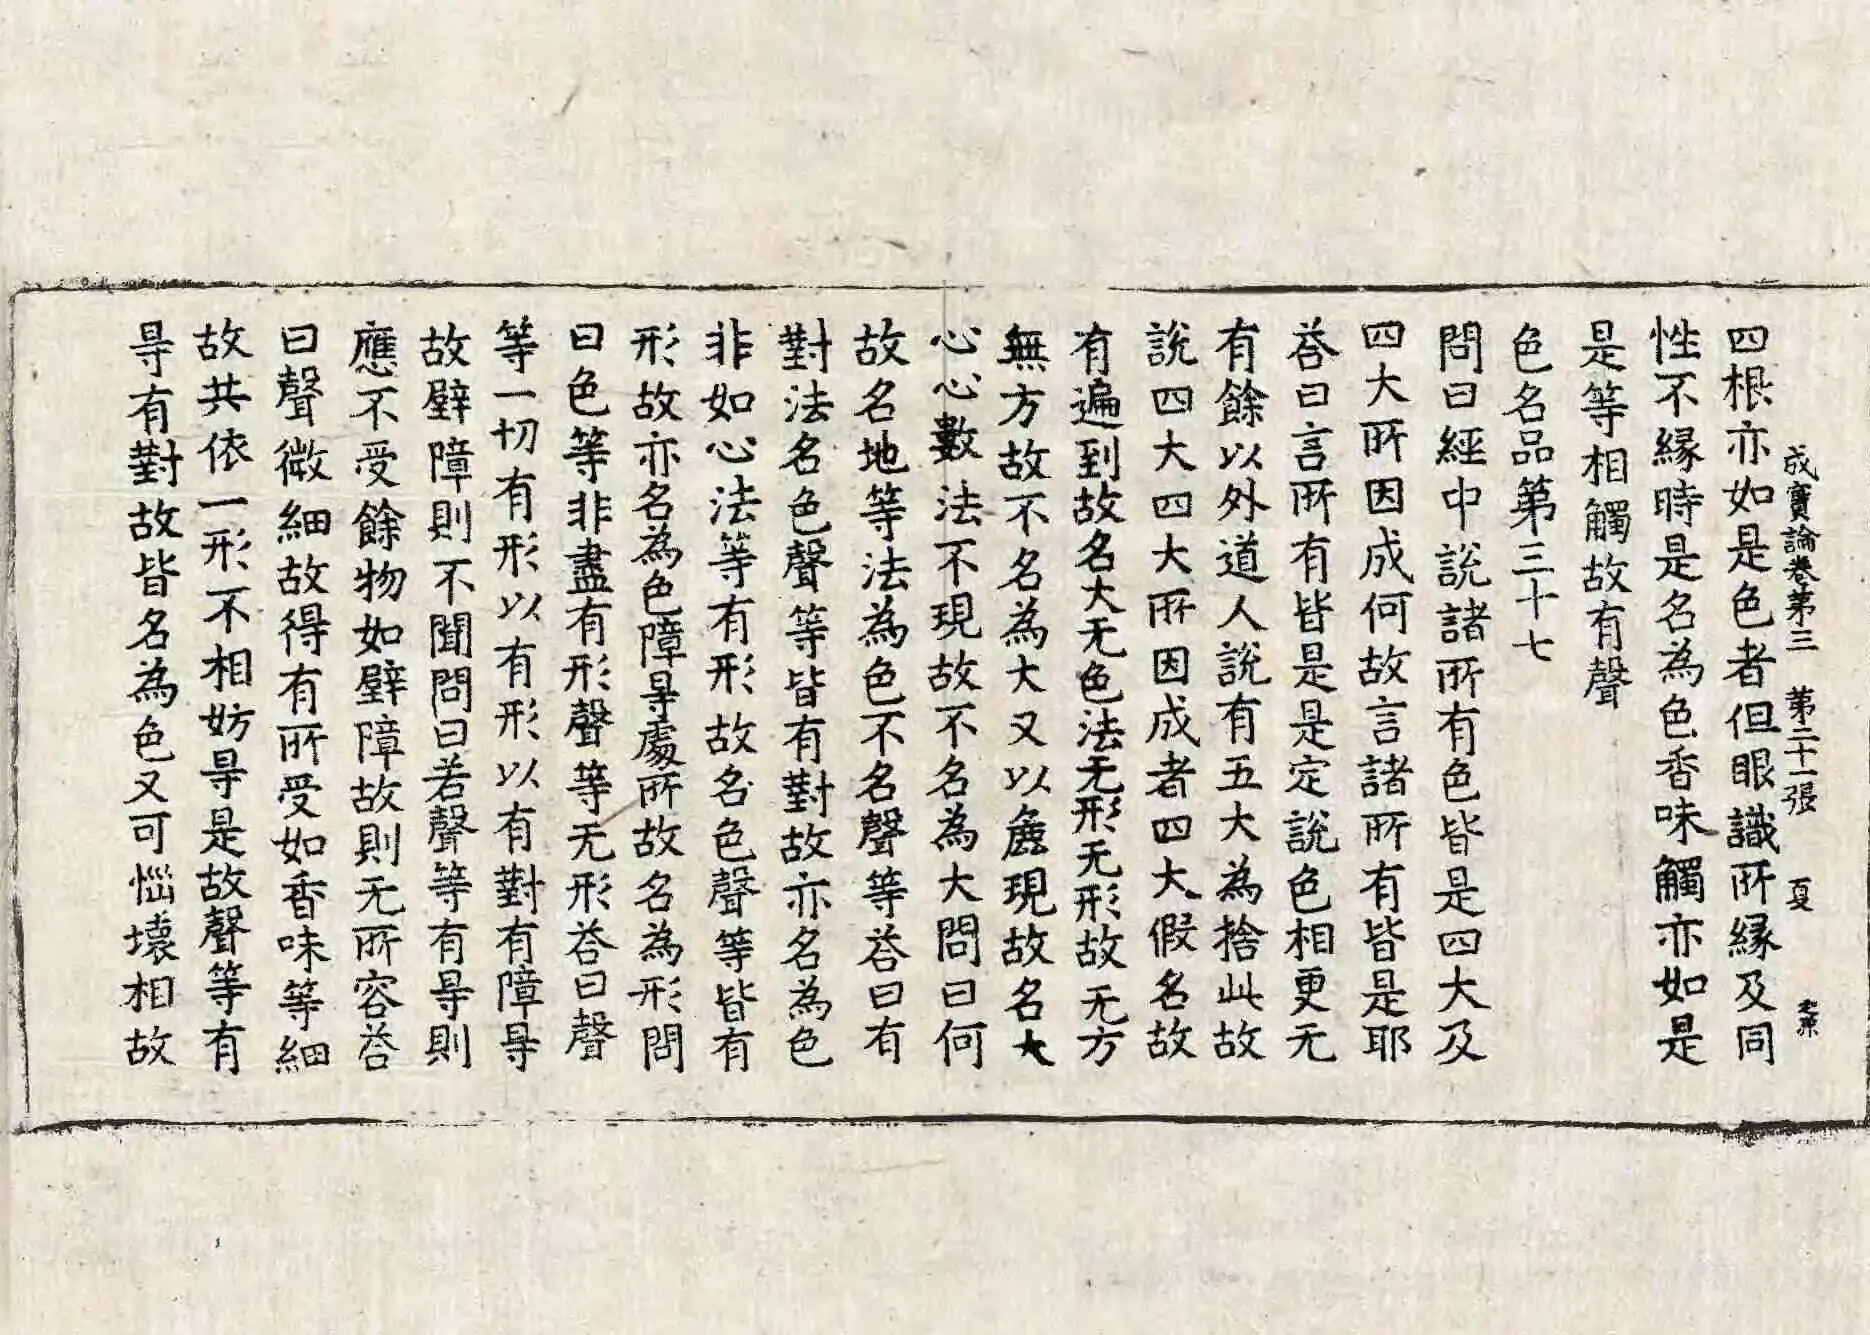 成實論卷第三　第二十一張　夏
四根亦如是色者但眼識所縁及同
性不縁時是名為色香味觸亦如是
是等相觸故有聲
色名品第三十七
問曰經中說諸所有色皆是四大及
四大所因成何故言諸所有皆是耶
荅曰言所有皆是是定說色相更无
有餘以外道人說有五大為捨此故
說四大四大所因成者四大假名故
有遍到故名大无色法无形无形故无方
無方故不名為大又以麁現故名大
心心數法不現故不名為大問曰何
故名地等法為色不名聲等荅曰有
對法名色聲等皆有對故亦名為色
非如心法等有形故名色聲等皆有
形故亦名為色障㝵處所故名為形問
曰色等非盡有形聲等无形荅曰聲
等一切有形以有形以有對有障㝵
故壁障則不聞問曰若聲等有㝵則
應不受餘物如壁障故則无所容荅
曰聲微細故得有所受如香味等細
故共依一形不相妨㝵是故聲等有
㝵有對故皆名為色又可惱壞相故